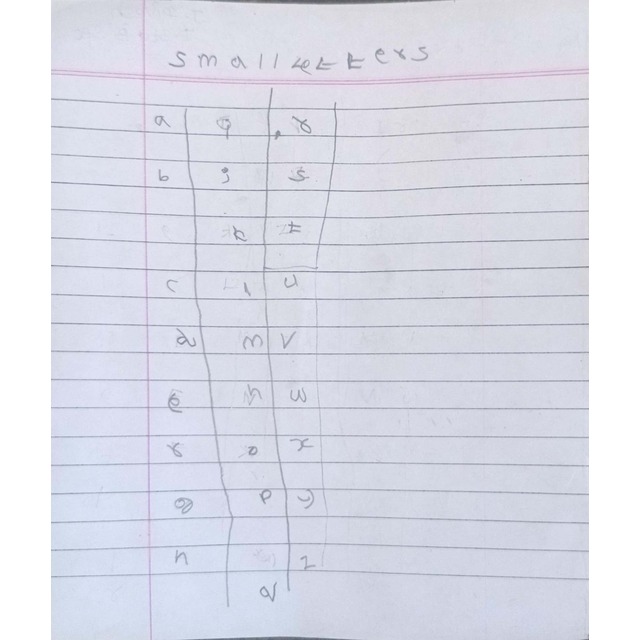 small letters
a i r
b j s
k t
c l u
d m v
e n w
f o x
g p y
h z
q